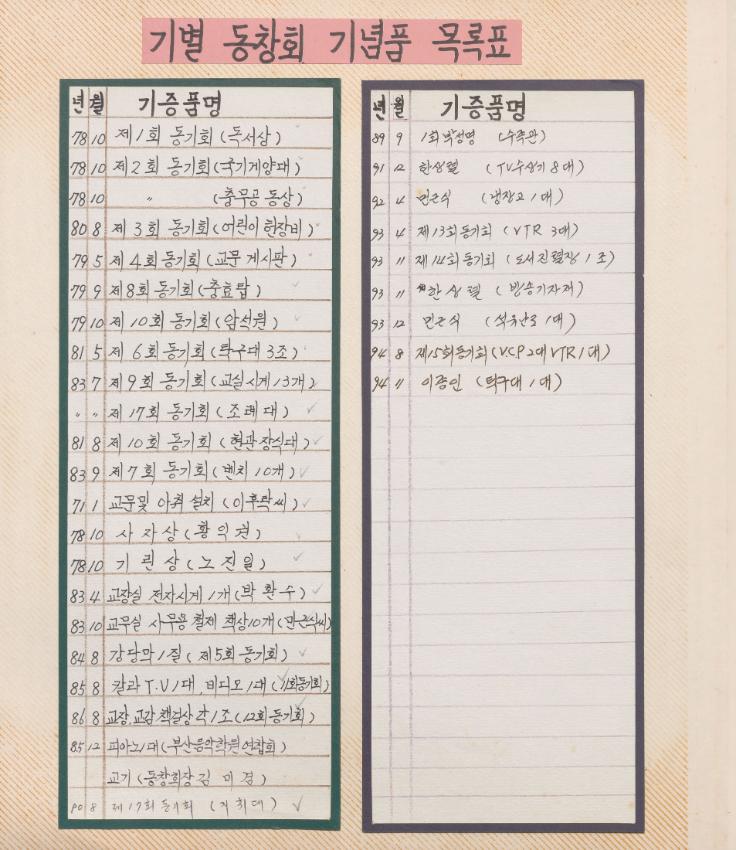 기별 동창회 기념품 목록표
년 월 기증품명
78 10 제1회 동기회 (독서상)
78 10 제2회 동기회 (국기게양대)
78 10 〃 (충무공 동상)
80 8 제3회 동기회 (어린이 헌장비)
79 5 제4회 동기회 (교문 게시판)
79 9 제8회 동기회 (충효탑)
79 10 제10회 동기회 (암석원)
81 5 제6회 동기회 (탁구대 3조)
83 7 제9회 동기회 (교실시계 13개)
〃 〃 제17회 동기회 (조례대)
81 8 제10회 동기회 (현관 장식대)
83 9 제7회 동기회 (벤치 10개)
71 1 교문및 아취 설치 (이후락씨)
78 10 사자상 (황익권)
78 10 기린상 (노진일)
83 4 교장실 전자시계 1개 (박환수)
83 10 교무실 사무용 철제 책상10개 (민근식씨)
84 8 강당막 1질 (제5회 동기회)
85 8 칼라 T.V 1대, 비디오 1대 (11회동기회)
86 8 교장,교감 책걸상 각1조 (12회 동기회)
85 12 피아노1대 (부산음악학원연합회)
교기 (동창회장 김미경)
90 8 제17회 동기회
년 월 기증품명
89 9 1회 박정명 (수족관)
91 12 한상렬 (TV수상기 8대)
92 4 민근식 (냉장고 1대)
93 4 제13회 동기회 (VTR 3대)
93 11 제14회 동기회 (도서진렬장 1조)
93 11 한상렬 (방송기자재)
93 12 민근식 (석유난로 1대)
94 8 제15회 동기회 (VCP 2대 VTR 1대)
94 11 이종인 (탁구대 1대)